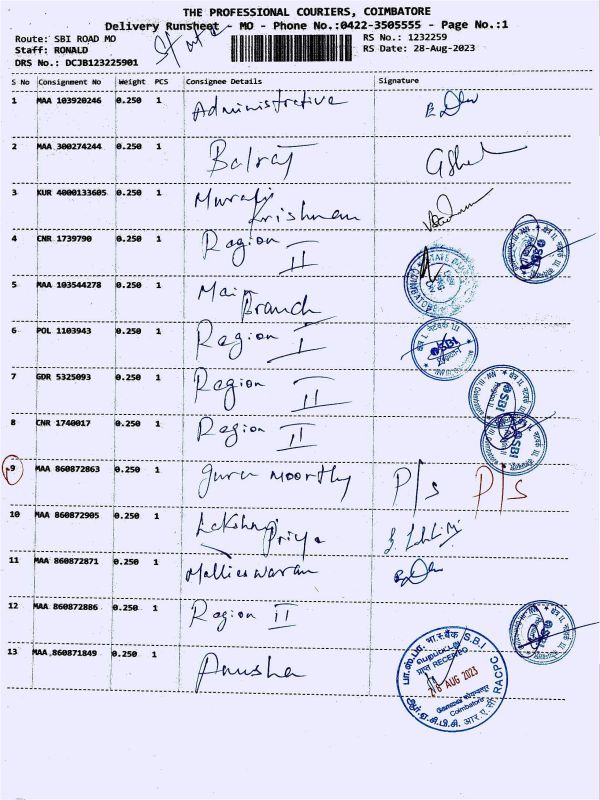 THE PROFESSIONAL COURIERS, COIMBATORE
Delivery Runsheet - MO - Phone No.:0422-3505555 - Page No.:1
Route: SBI ROAD MO
RS No.: 1232259
Staff: RONALD
RS Date: 28-Aug-2023
DRS No.: DCJB123225901
S No Consignment No Weight PCS Consignee Details Signature
1 MAA 103920246 0.250 1 Administrative
2 MAA 300274244 0.250 1 Balraj
3 KUR 4000133605 0.250 1 Murali Krishnan
4 CNR 1739790 0.250 1 Region II
5 MAA 103544278 0.250 1 Main Branch
6 POL 1103943 0.250 1 Region I
7 GDR 5325093 0.250 1 Region II
8 CNR 1740017 0.250 1 Region II
9 MAA 860872863 0.250 1 Guru Moorthy P/s P/s
10 MAA 860872905 0.250 1 Lakshmi Priya
11 MAA 860872871 0.250 1 Mallieswaran
12 MAA 860872886 0.250 1 Region II
13 MAA 860871849 0.250 1 Anusha
भा.स्टे.बैंक S.B.I
प्राप्त RECEIVED
AUG 2023
Coimbatore
RACPC